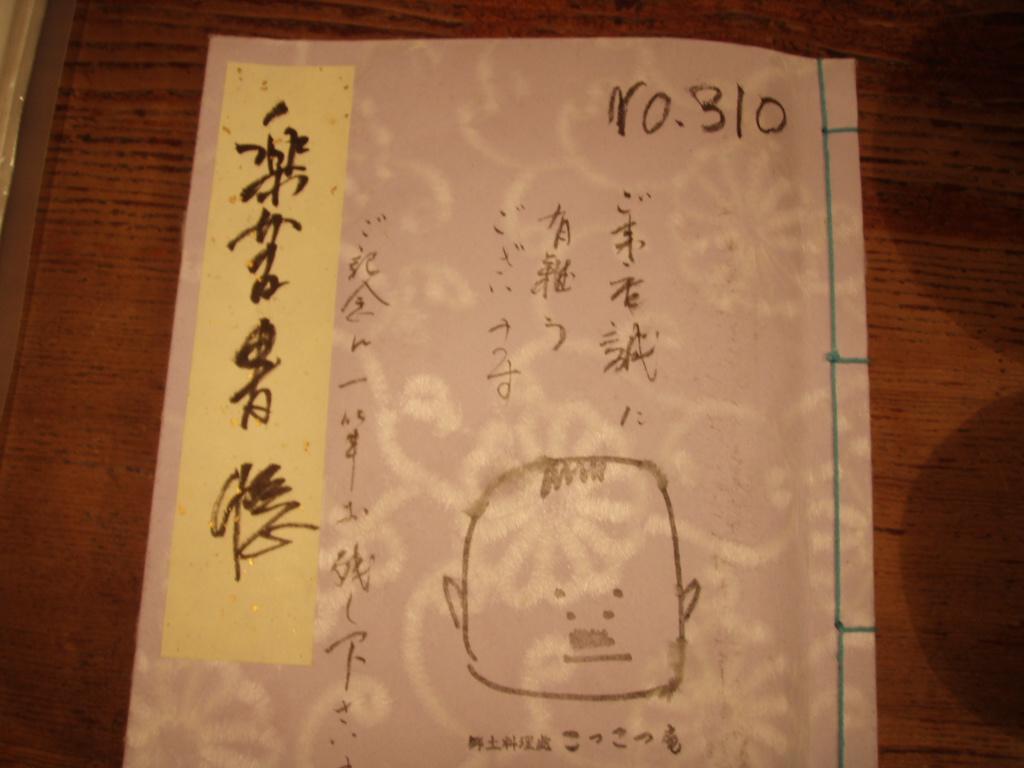 NO.310
ご来店誠に
有難う
ございます
ご記念に一筆お残し下さいませ
楽書帳
郷土料理處 こつこつ庵